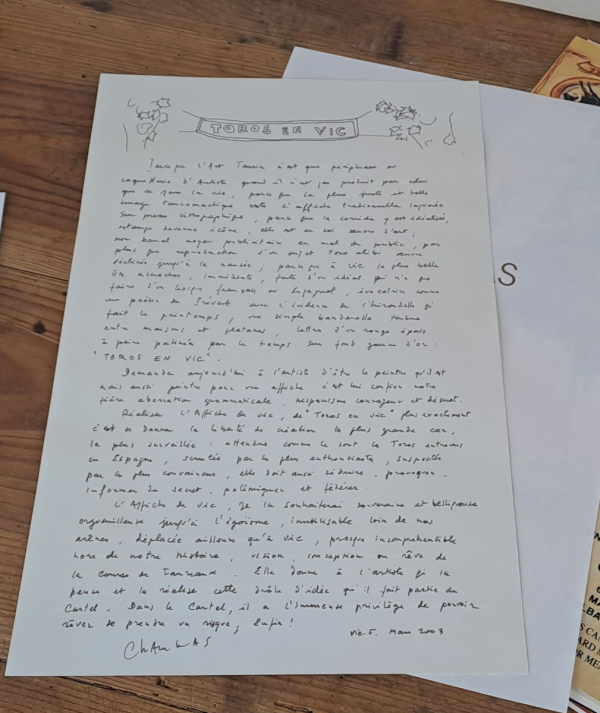 TOROS EN VIC
Parce que L'Art Taurin n'est que périphrase ou
coquetterie d'Artiste quand il n'est pas produit par celui
que se joue la vie, parce que la plus juste et belle
image tauromachique reste l'affiche traditionnelle imprimée
sur presse lithographique, parce que la corrida y est idéalisée,
estampe devenue icône, elle est en soi œuvre d'art,
non banal moyen publicitaire en mal de public, pas
plus que reproduction d'un sujet Toro alibi
déclinée jusqu'à la nausée, parce qu'à Vic la plus belle
des accroches, immédiate, forte d'un idéal qui n'a que
faire d'un lexique français ou Espagnol, évocation comme
une poésie de Prévert avec l'évidence de l'hirondelle qui
fait le printemps, une simple banderolle tendue
entre maisons et platanes, lettres d'un rouge épais
à peine patinées par le temps sur fond jaune d'or :
"TOROS EN VIC".
Demander aujourd'hui à l'artiste d'être le peintre qu'il est
mais aussi peintre pour une affiche c'est lui confier notre
fière aberration grammaticale, hispanisme courageux et désuet.
Réaliser L'Affiche de Vic, de "Toros en Vic" plus exactement
c'est se donner la liberté de création la plus grande car
la plus surveillée : attendue comme le sont les Toros entrevus
en Espagne, scrutée par le plus enthousiaste, suspectée
par le plus convaincu, elle doit aussi séduire, provoquer,
informer du secret, polémiquer et fédérer.
L'Affiche de Vic, je la souhaiterai souveraine et belliqueuse
orgueilleuse jusqu'à l'égoïsme, inutilisable loin de nos
arènes, déplacée ailleurs qu'à Vic, presque incompréhensible
hors de notre histoire, vision, conception ou rêve de
la course de Taureaux. Elle donne à l'artiste qui la
pense et la réalise cette drôle d'idée qu'il fait partie du
Cartel. Dans le Cartel, il a l'immense privilège de pouvoir
rêver de prendre un risque, Enfin !
Vic.F. Mars 2003
CHAMBAS
AS